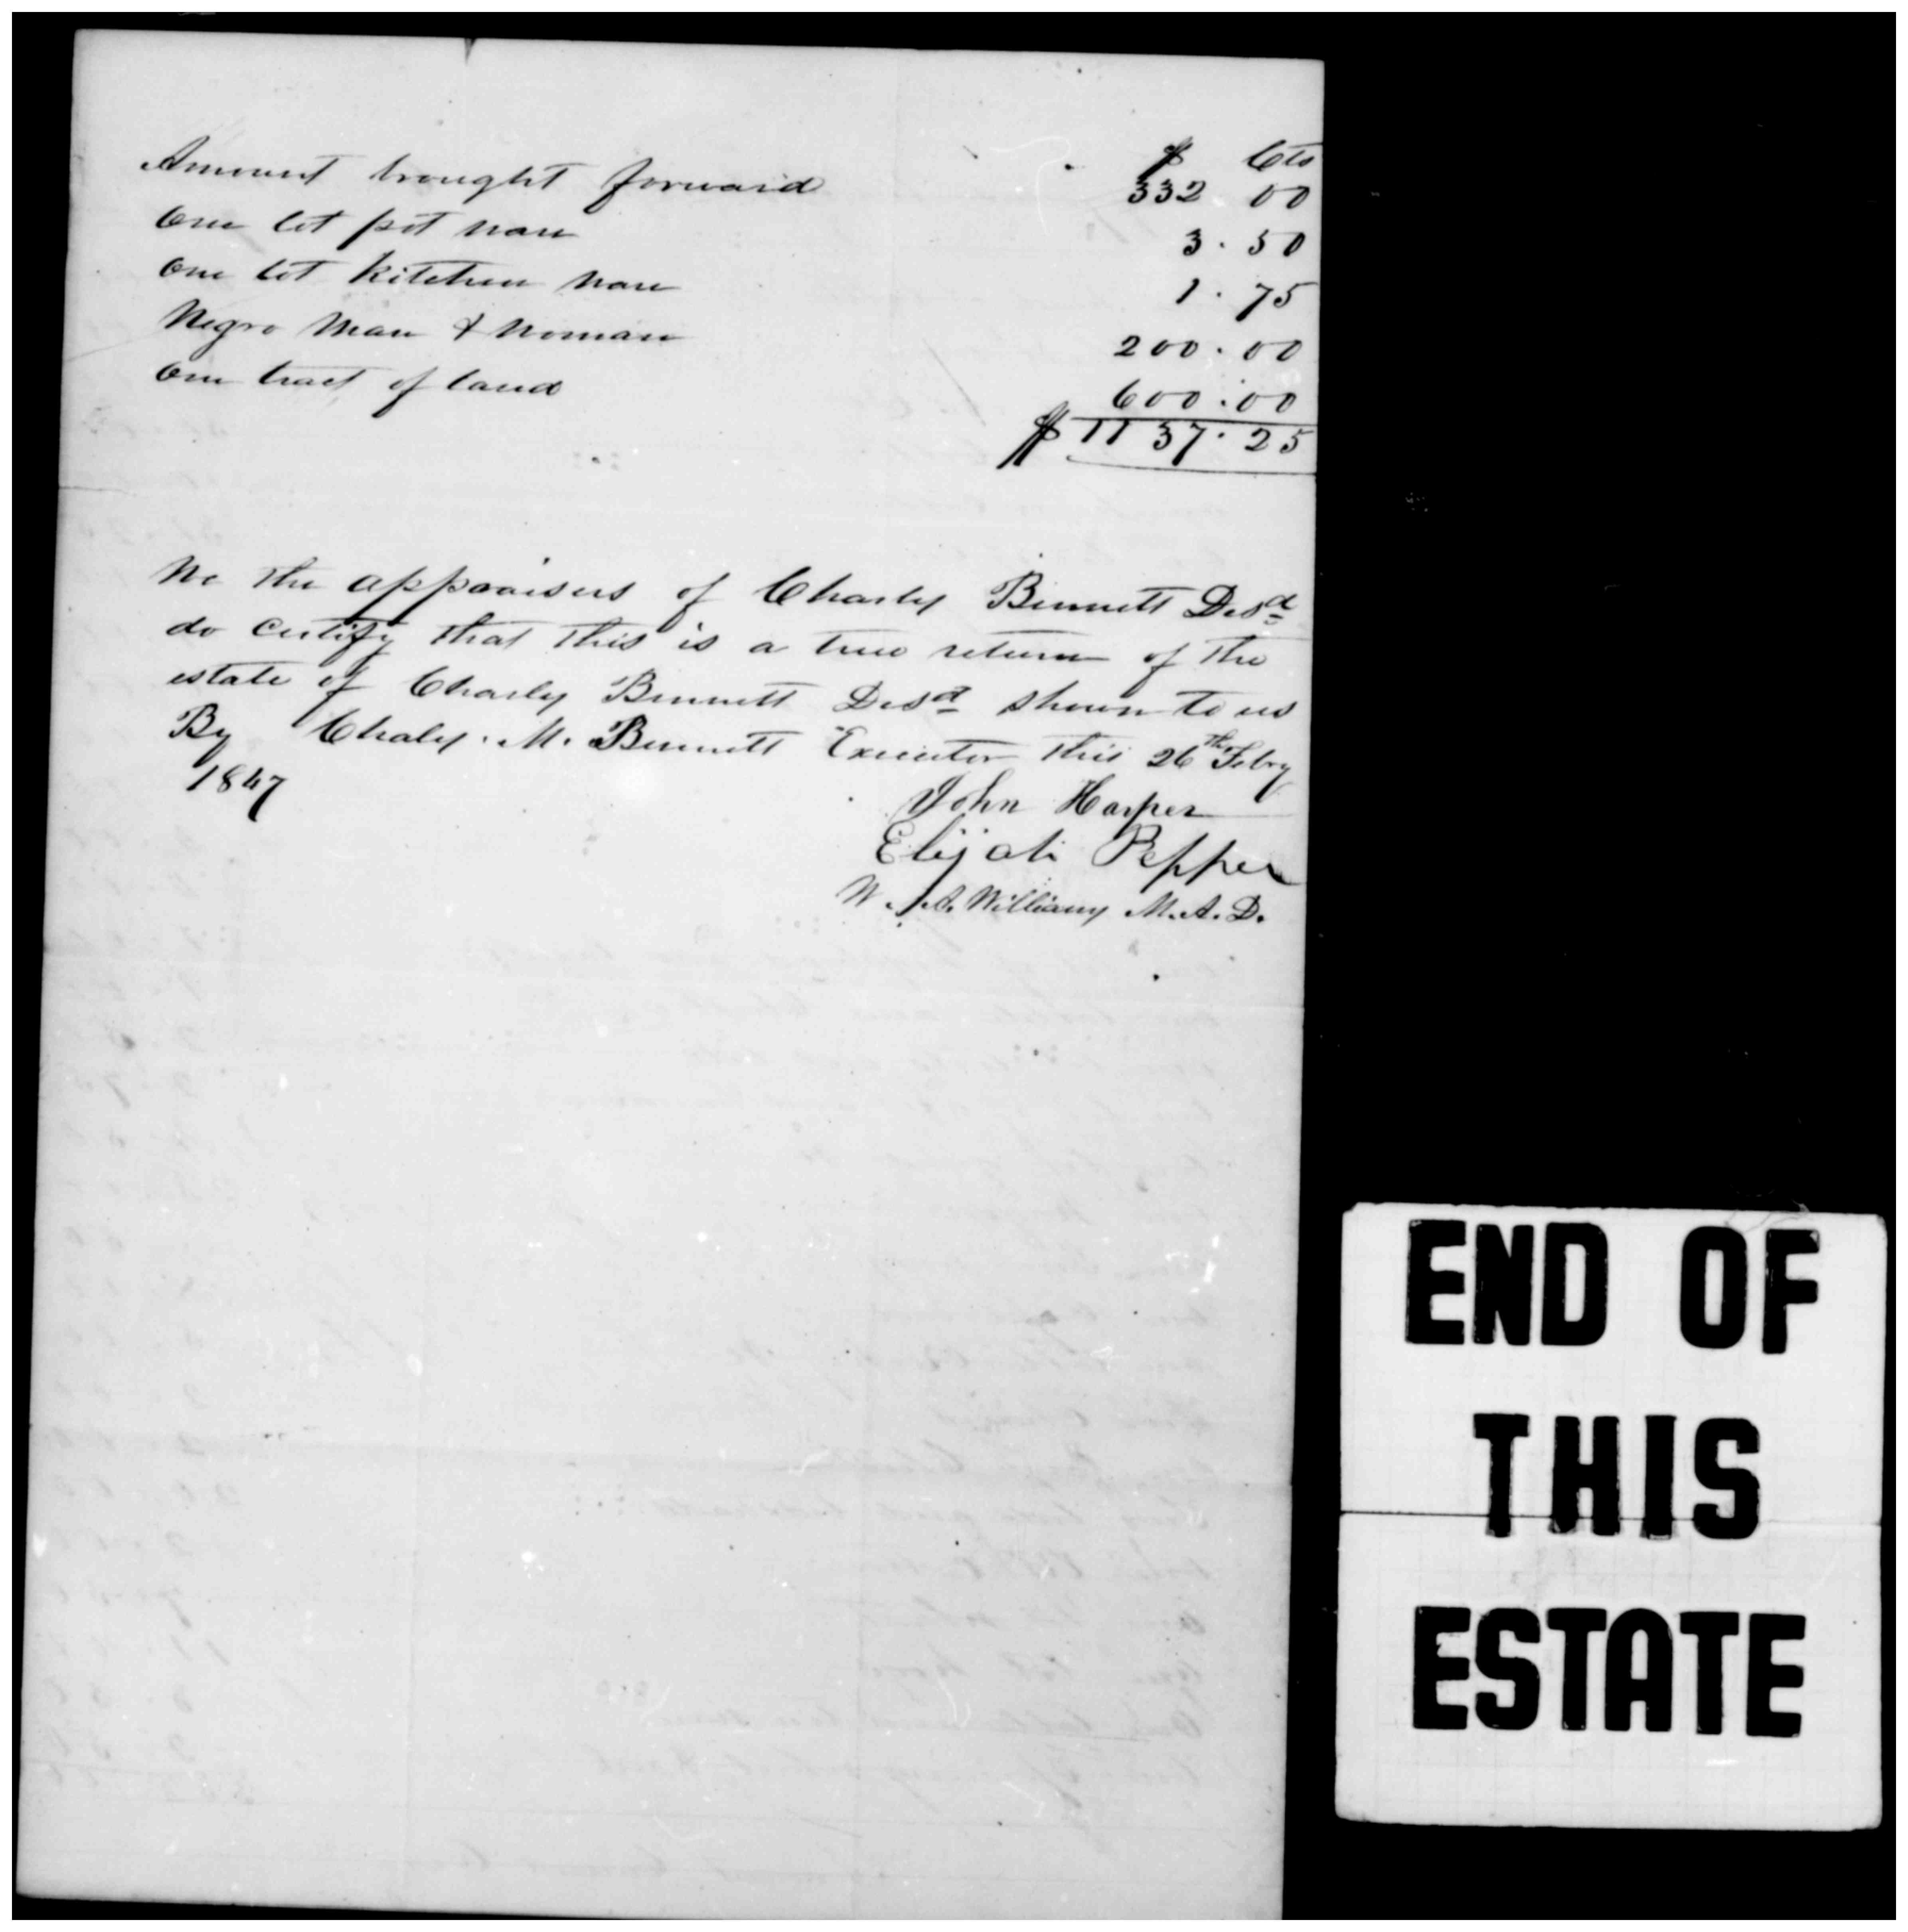 $ Cts
Amount brought forward 332 00
One lot pot ware 3. 50
One lot kitchen ware 1. 75
Negro Man & Woman 200.00
One tract of land 600.00
$ 1137.25
We the appraisers of Charly Bennett Desd
do certify that this is a true return of the
estate of Charly Bennett Desd shown to us
By Chaly. M. Bennett Executor this 26th Feby
1847
John Harper
Elijah Pepper
W. A. Williams M.A.D.
END OF
THIS
ESTATE